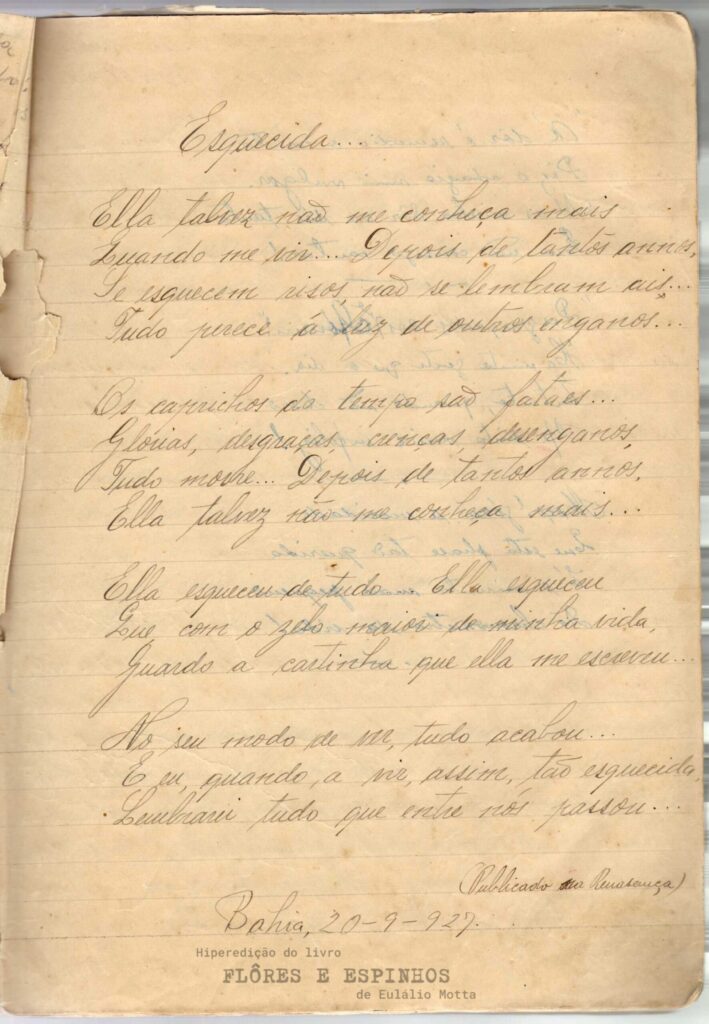 Esquecida...
Ella talvez naõ me conheça mais
Quando me vir... Depois de tantos annos,
Se esquecem risos, naõ se lembram ais...
Tudo perece á luz de outros enganos...
Os caprichos do tempo saõ fataes...
Glorias, desgraças, crenças, desenganos,
Tudo morre... Depois de tantos annos,
Ella talvez não me conheça mais...
Ella esqueceu de tudo. Ella esqueceu
Que, com o zelo maior de minha vida,
Guardo a cartinha que ella me escreveu...
No seu modo de ver, tudo acabou...
E eu, quando a vir, assim, tão esquecida,
Lembrarei tudo que entre nós passou...
(Publicado na Renascença)
Bahia, 20-9-927.
Hiperedição do livro
FLÔRES E ESPINHOS
de Eulálio Motta